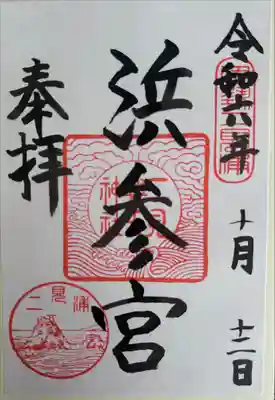 令和六年
十月
十二日
浜参宮
奉拝
二見浦